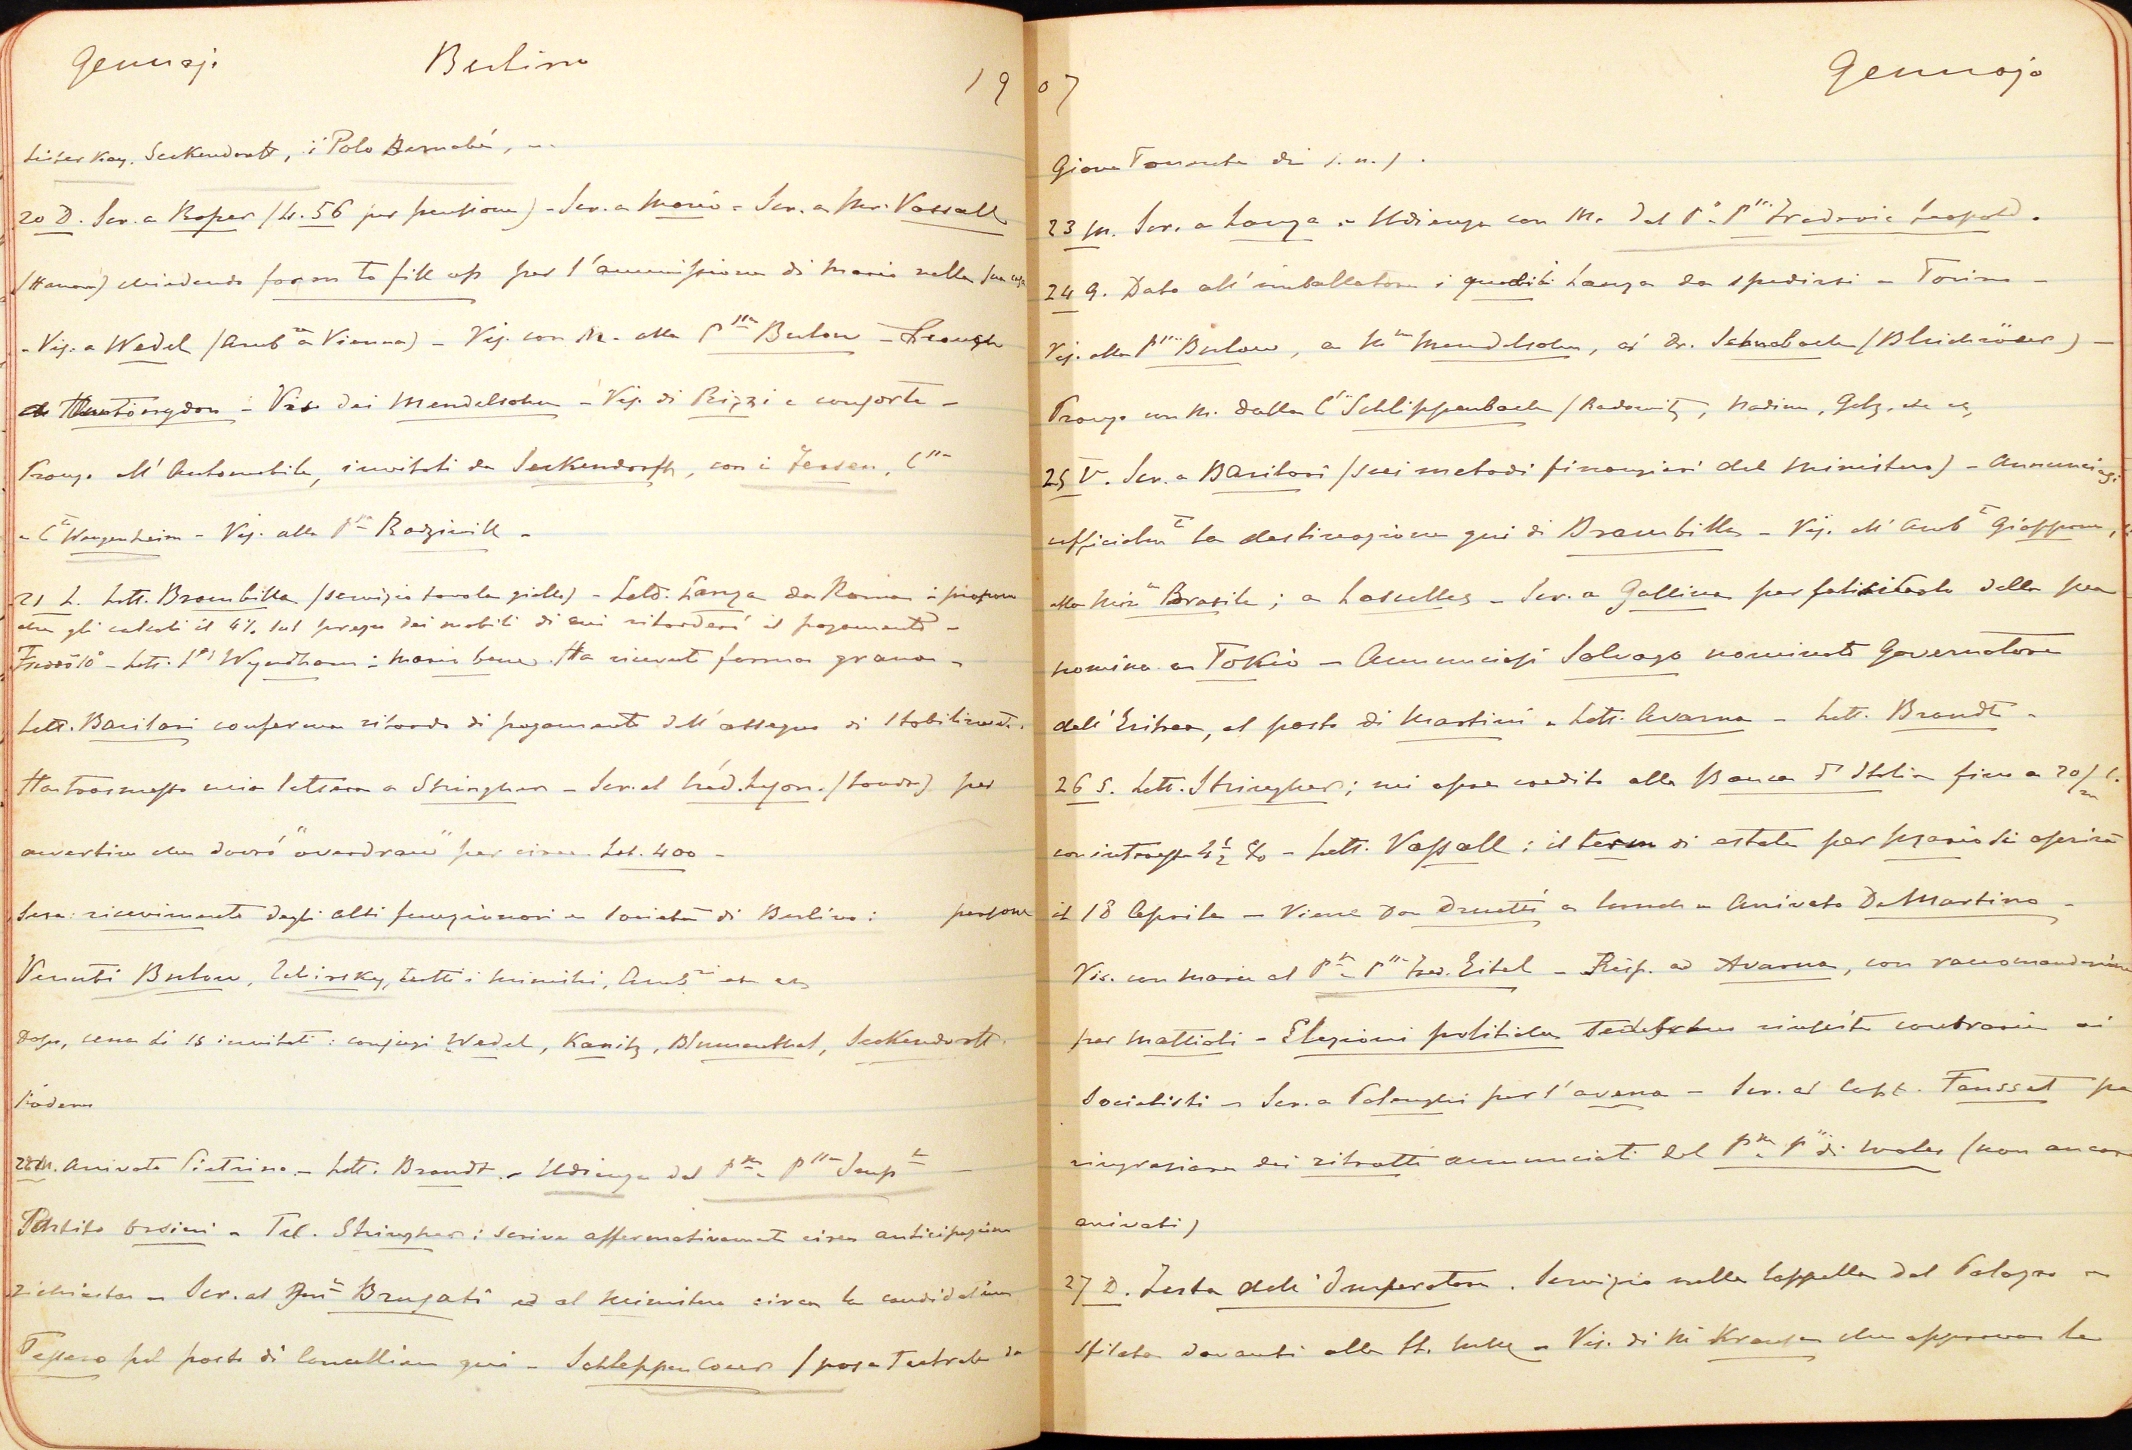 Gennajo Berlino 19
Seckendorff, i Polo Bernabé, ...
20 D. Scr. a Roper (Ls. 56 per pensione) - Scr. a Mario - Scr. a Mr. Vassall
(Harrow) chiedendo form to fill up per l'ammissione di Mario nella sua casa
- Vis. a Wedel (Amb.re a Vienna) - Vis. con M. alla P.ssa Bulow -
- Vis. dei Mendelsohn - Vis. di Rizzi e consorte -
Pranzo all'Automobile, invitati da Seckendorff, con i Jensen, C.ssa
e C.te Wangenheim - Vis. alla P.ssa Radziwill -
21 L. Lett. Brambilla (servizio tavola giallo) - Lett. Lanza da Roma: propone
che gli calcoli il 4% sul prezzo dei mobili di cui ritarderà il pagamento -
Freddo 10° - Lett. Wyndham: Mario bene. Ha ricevuto
Lett. Barilari conferma ritardo di pagamento dell'assegno di stabilimento.
Ha trasmesso mia lettera a Stringher - Scr. al Créd. Lyon. (Londra) per
avvertire che dovrò "overdraw" per circa Lst. 400 -
Sera: ricevimento degli alti funzionari e società di Berlino: persone
Venuti Bulow, Tchirsky, tutti i ministri, Amb.ri etc etc
Dopo, cena di 15 invitati: conjugi Wedel, Kanitz, Blumenthal, Seckendorff,
Ródern
22 M. Arrivato Pietrino - Lett. Brandt - Udienza del P.pe e P.ssa
Partito Orsini - Tel. Stringher: scrive affermativamente circa anticipazione
richiesta - Scr. al Gen.le Brusati ed al Ministro circa la candidatura
Tessaro pel posto di Cancelliere qui - Schleppencour (posa teatrale da
07 Gennajo
Giove Tonante di S. M.).
23 M. Scr. a Lanza - Udienza con M. del P.pe e P.ssa Frederic Leopold.
24 G. Dato all'imballatore i quadri Lanza da spedirsi a Torino -
Vis. alla P.ssa Bulow, a M.me Mendelsohn, al Dr. Schwabach (Bleichröder) -
Pranzo con M. dalla C.ssa Schlippenbach (Radowitz, Nadine, Goltz, etc etc,
25 V. Scr. a Barilari (sui metodi finanziari del Ministero) - Annunciasi
ufficialm.te la destinazione qui di Brambilla - Vis. all'Amb.ce Giappone,
alla Min.a Brasile; a Lascelles - Scr. a Gallina per felicitarlo della sua
nomina a Tokio - Annunciasi Salvago nominato Governatore
dell'Eritrea, al posto di Martini - Lett. Avarna - Lett. Brandt -
26 S. Lett. Stringher; mi apre credito alla Banca d'Italia fino a 20/m l.
con interesse 4 1/2 % - Lett. Vassall: il term di estate per Mario si aprirà
il 18 Aprile - Viene Don Drustei a lunch - Arrivato De Martino -
Vis. con Maria al P.pe e P.ssa Fred. Eitel - Risp. ad Avarna, con raccomandazione
per Mattioli - Elezioni politiche Tedesche riuscite contrarie ai
Socialisti - Scr. a Palenghi per l'avena - Scr. al Capt. Faussett per
ringraziare dei ritratti annunciati del P.pe e P.ssa di Wales (non ancora
arrivati)
27 D. Festa dell'Imperatore. Servizio nella Cappella del Palazzo -
Sfilata davanti alle LL. MM. - Vis. di Mr Krause che approva la